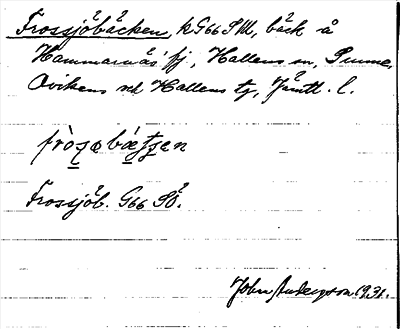 Frossjöbäcken, k G66 SV, bäck å
Hammarnäs' fj, Hallens sn, Sunne,
Ovikens och Hallens tg, Jämtl. l.
Frossjöb. G66 SO.
John Anderzson 1931.